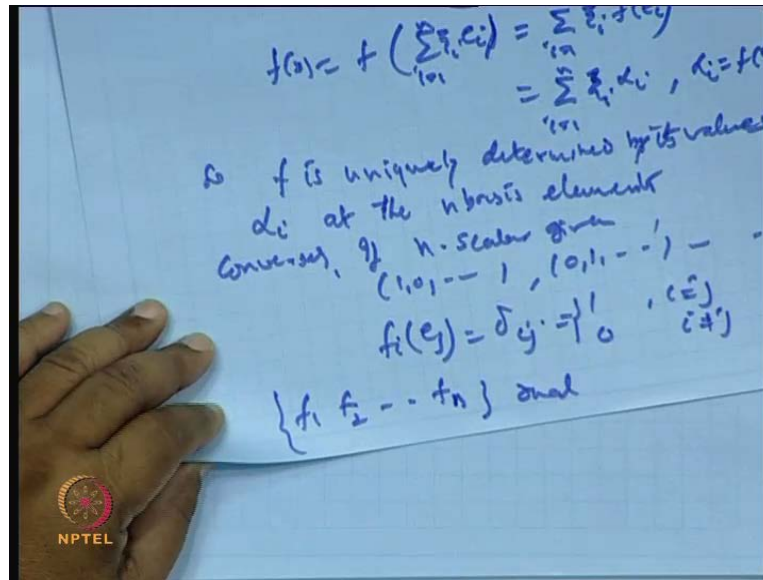 f(x) = f ( ∑ᵢ₌₁ⁿ ξᵢ eᵢ ) = ∑ᵢ₌₁ⁿ ξᵢ f(eᵢ)
= ∑ᵢ₌₁ⁿ ξᵢ αᵢ , αᵢ = f(
So f is uniquely determined by its values
αᵢ at the n basis elements
conversely, if n-scalars given
(1,0,--- ) , (0,1,---) — -
fᵢ(eⱼ) = δᵢⱼ = { 1 , i=j
0 i≠j
{ f₁ f₂ -- fₙ } dual
NPTEL